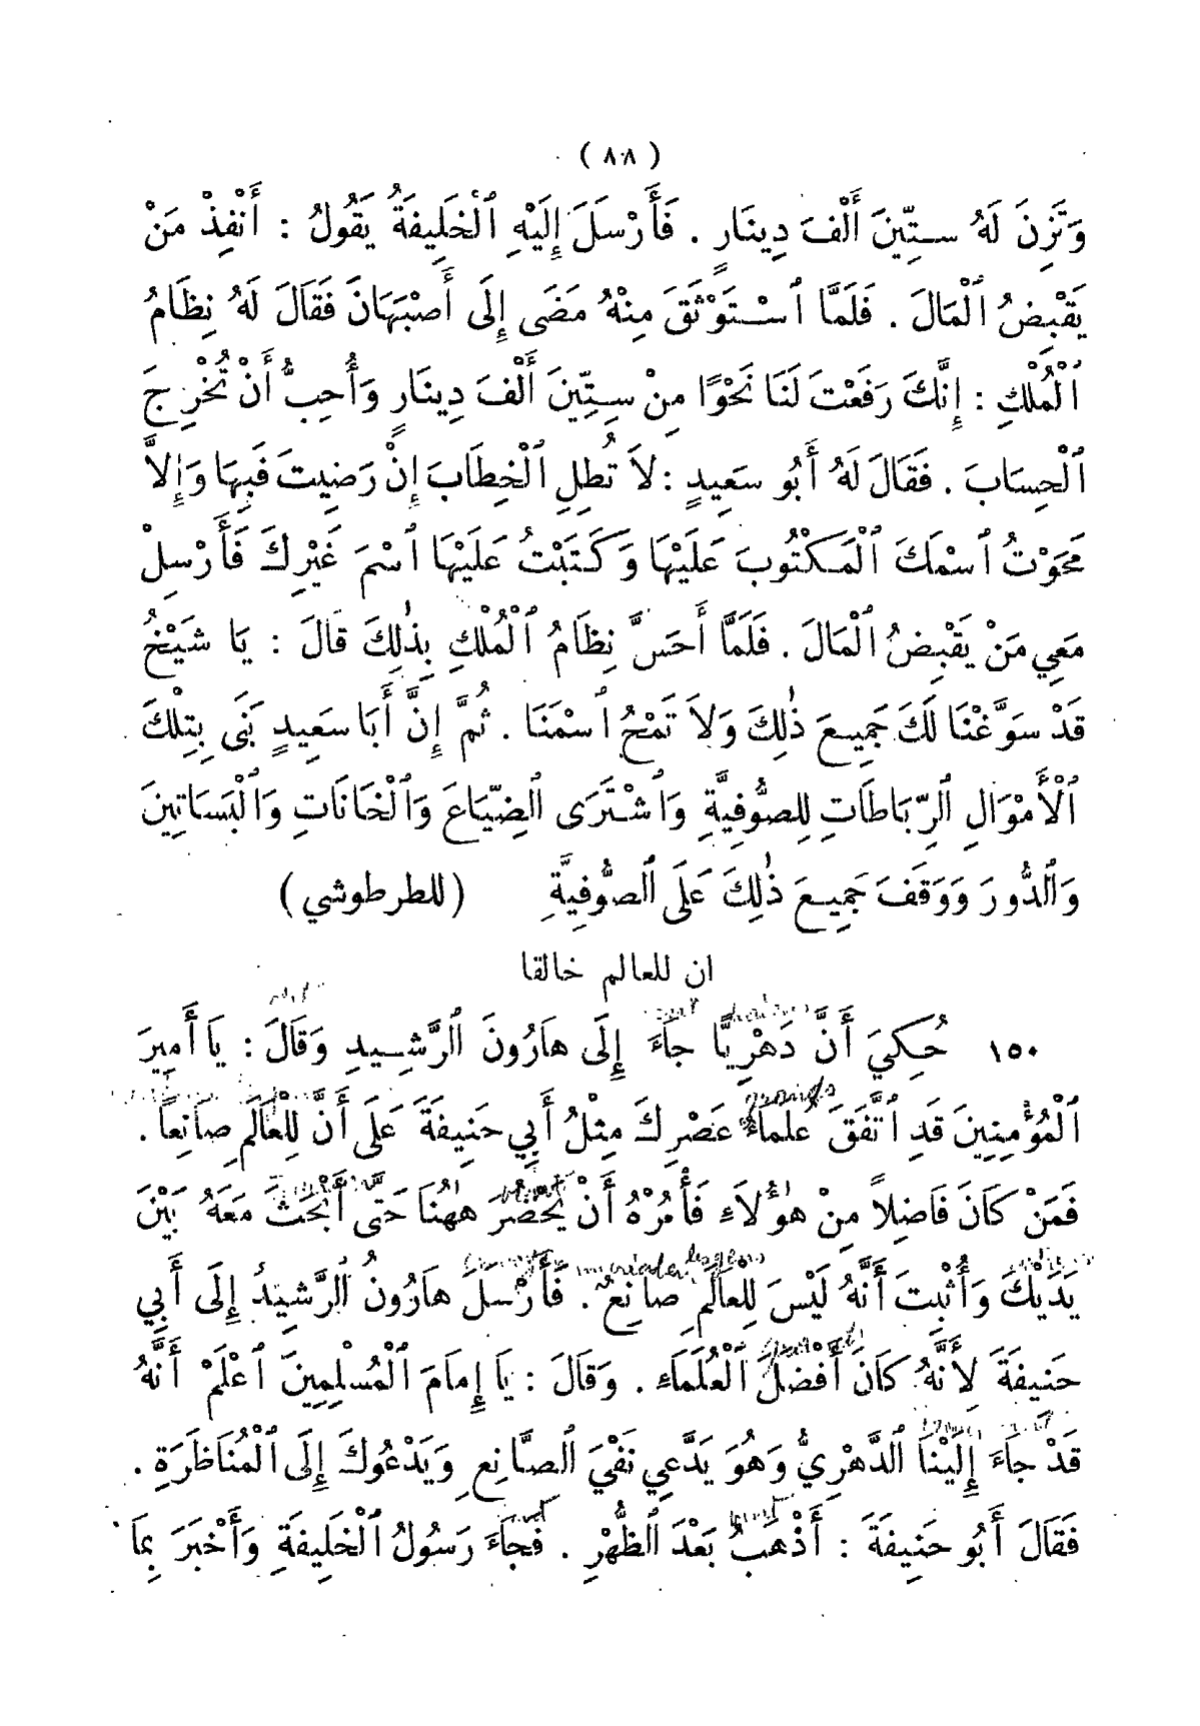 ( ٨٨ )
وَتَزِنَ لَهُ سِتِّينَ أَلْفَ دِينَارٍ . فَأَرْسَلَ إِلَيْهِ ٱلْخَلِيفَةُ يَقُولُ : أَنْفِذْ مَنْ
يَقْبِضُ ٱلْمَالَ . فَلَمَّا ٱسْتَوْثَقَ مِنْهُ مَضَى إِلَى أَصْبَهَانَ فَقَالَ لَهُ نِظَامُ
ٱلْمُلْكِ : إِنَّكَ رَفَعْتَ لَنَا نَحْوًا مِنْ سِتِّينَ أَلْفَ دِينَارٍ وَأُحِبُّ أَنْ تُخْرِجَ
ٱلْحِسَابَ . فَقَالَ لَهُ أَبُو سَعِيدٍ : لَا تُطِلِ ٱلْخِطَابَ إِنْ رَضِيتَ فَبِهَا وَإِلَّا
مَحَوْتُ ٱسْمَكَ ٱلْمَكْتُوبَ عَلَيْهَا وَكَتَبْتُ عَلَيْهَا ٱسْمَ غَيْرِكَ فَأَرْسِلْ
مَعِي مَنْ يَقْبِضُ ٱلْمَالَ . فَلَمَّا أَحَسَّ نِظَامُ ٱلْمُلْكِ بِذٰلِكَ قَالَ : يَا شَيْخُ
قَدْ سَوَّغْنَا لَكَ جَمِيعَ ذٰلِكَ وَلَا تَمْحُ ٱسْمَنَا . ثُمَّ إِنَّ أَبَا سَعِيدٍ بَنَى بِتِلْكَ
ٱلْأَمْوَالِ ٱلرِّبَاطَاتِ لِلصُّوفِيَّةِ وَٱشْتَرَى ٱلضِّيَاعَ وَٱلْخَانَاتِ وَٱلْبَسَاتِينَ
وَٱلدُّورَ وَوَقَفَ جَمِيعَ ذٰلِكَ عَلَى ٱلصُّوفِيَّةِ (للطرطوشي)
ان للعالم خالقا
١٥٠ حُكِيَ أَنَّ دَهْرِيًّا جَاءَ إِلَى هَارُونَ ٱلرَّشِيدِ وَقَالَ : يَا أَمِيرَ
ٱلْمُؤْمِنِينَ قَدِ ٱتَّفَقَ عُلَمَاءُ عَصْرِكَ مِثْلُ أَبِي حَنِيفَةَ عَلَى أَنَّ لِلْعَالَمِ صَانِعًا .
فَمَنْ كَانَ فَاضِلًا مِنْ هٰؤُلَاءِ فَأْمُرْهُ أَنْ يَحْضُرَ هٰهُنَا حَتَّى أَبْحَثَ مَعَهُ بَيْنَ
يَدَيْكَ وَأُثْبِتَ أَنَّهُ لَيْسَ لِلْعَالَمِ صَانِعٌ . فَأَرْسَلَ هَارُونُ ٱلرَّشِيدُ إِلَى أَبِي
حَنِيفَةَ لِأَنَّهُ كَانَ أَفْضَلَ ٱلْعُلَمَاءِ . وَقَالَ : يَا إِمَامَ ٱلْمُسْلِمِينَ ٱعْلَمْ أَنَّهُ
قَدْ جَاءَ إِلَيْنَا ٱلدَّهْرِيُّ وَهُوَ يَدَّعِي نَفْيَ ٱلصَّانِعِ وَيَدْعُوكَ إِلَى ٱلْمُنَاظَرَةِ .
فَقَالَ أَبُو حَنِيفَةَ : أَذْهَبُ بَعْدَ ٱلظُّهْرِ . فَجَاءَ رَسُولُ ٱلْخَلِيفَةِ وَأَخْبَرَ بِمَا